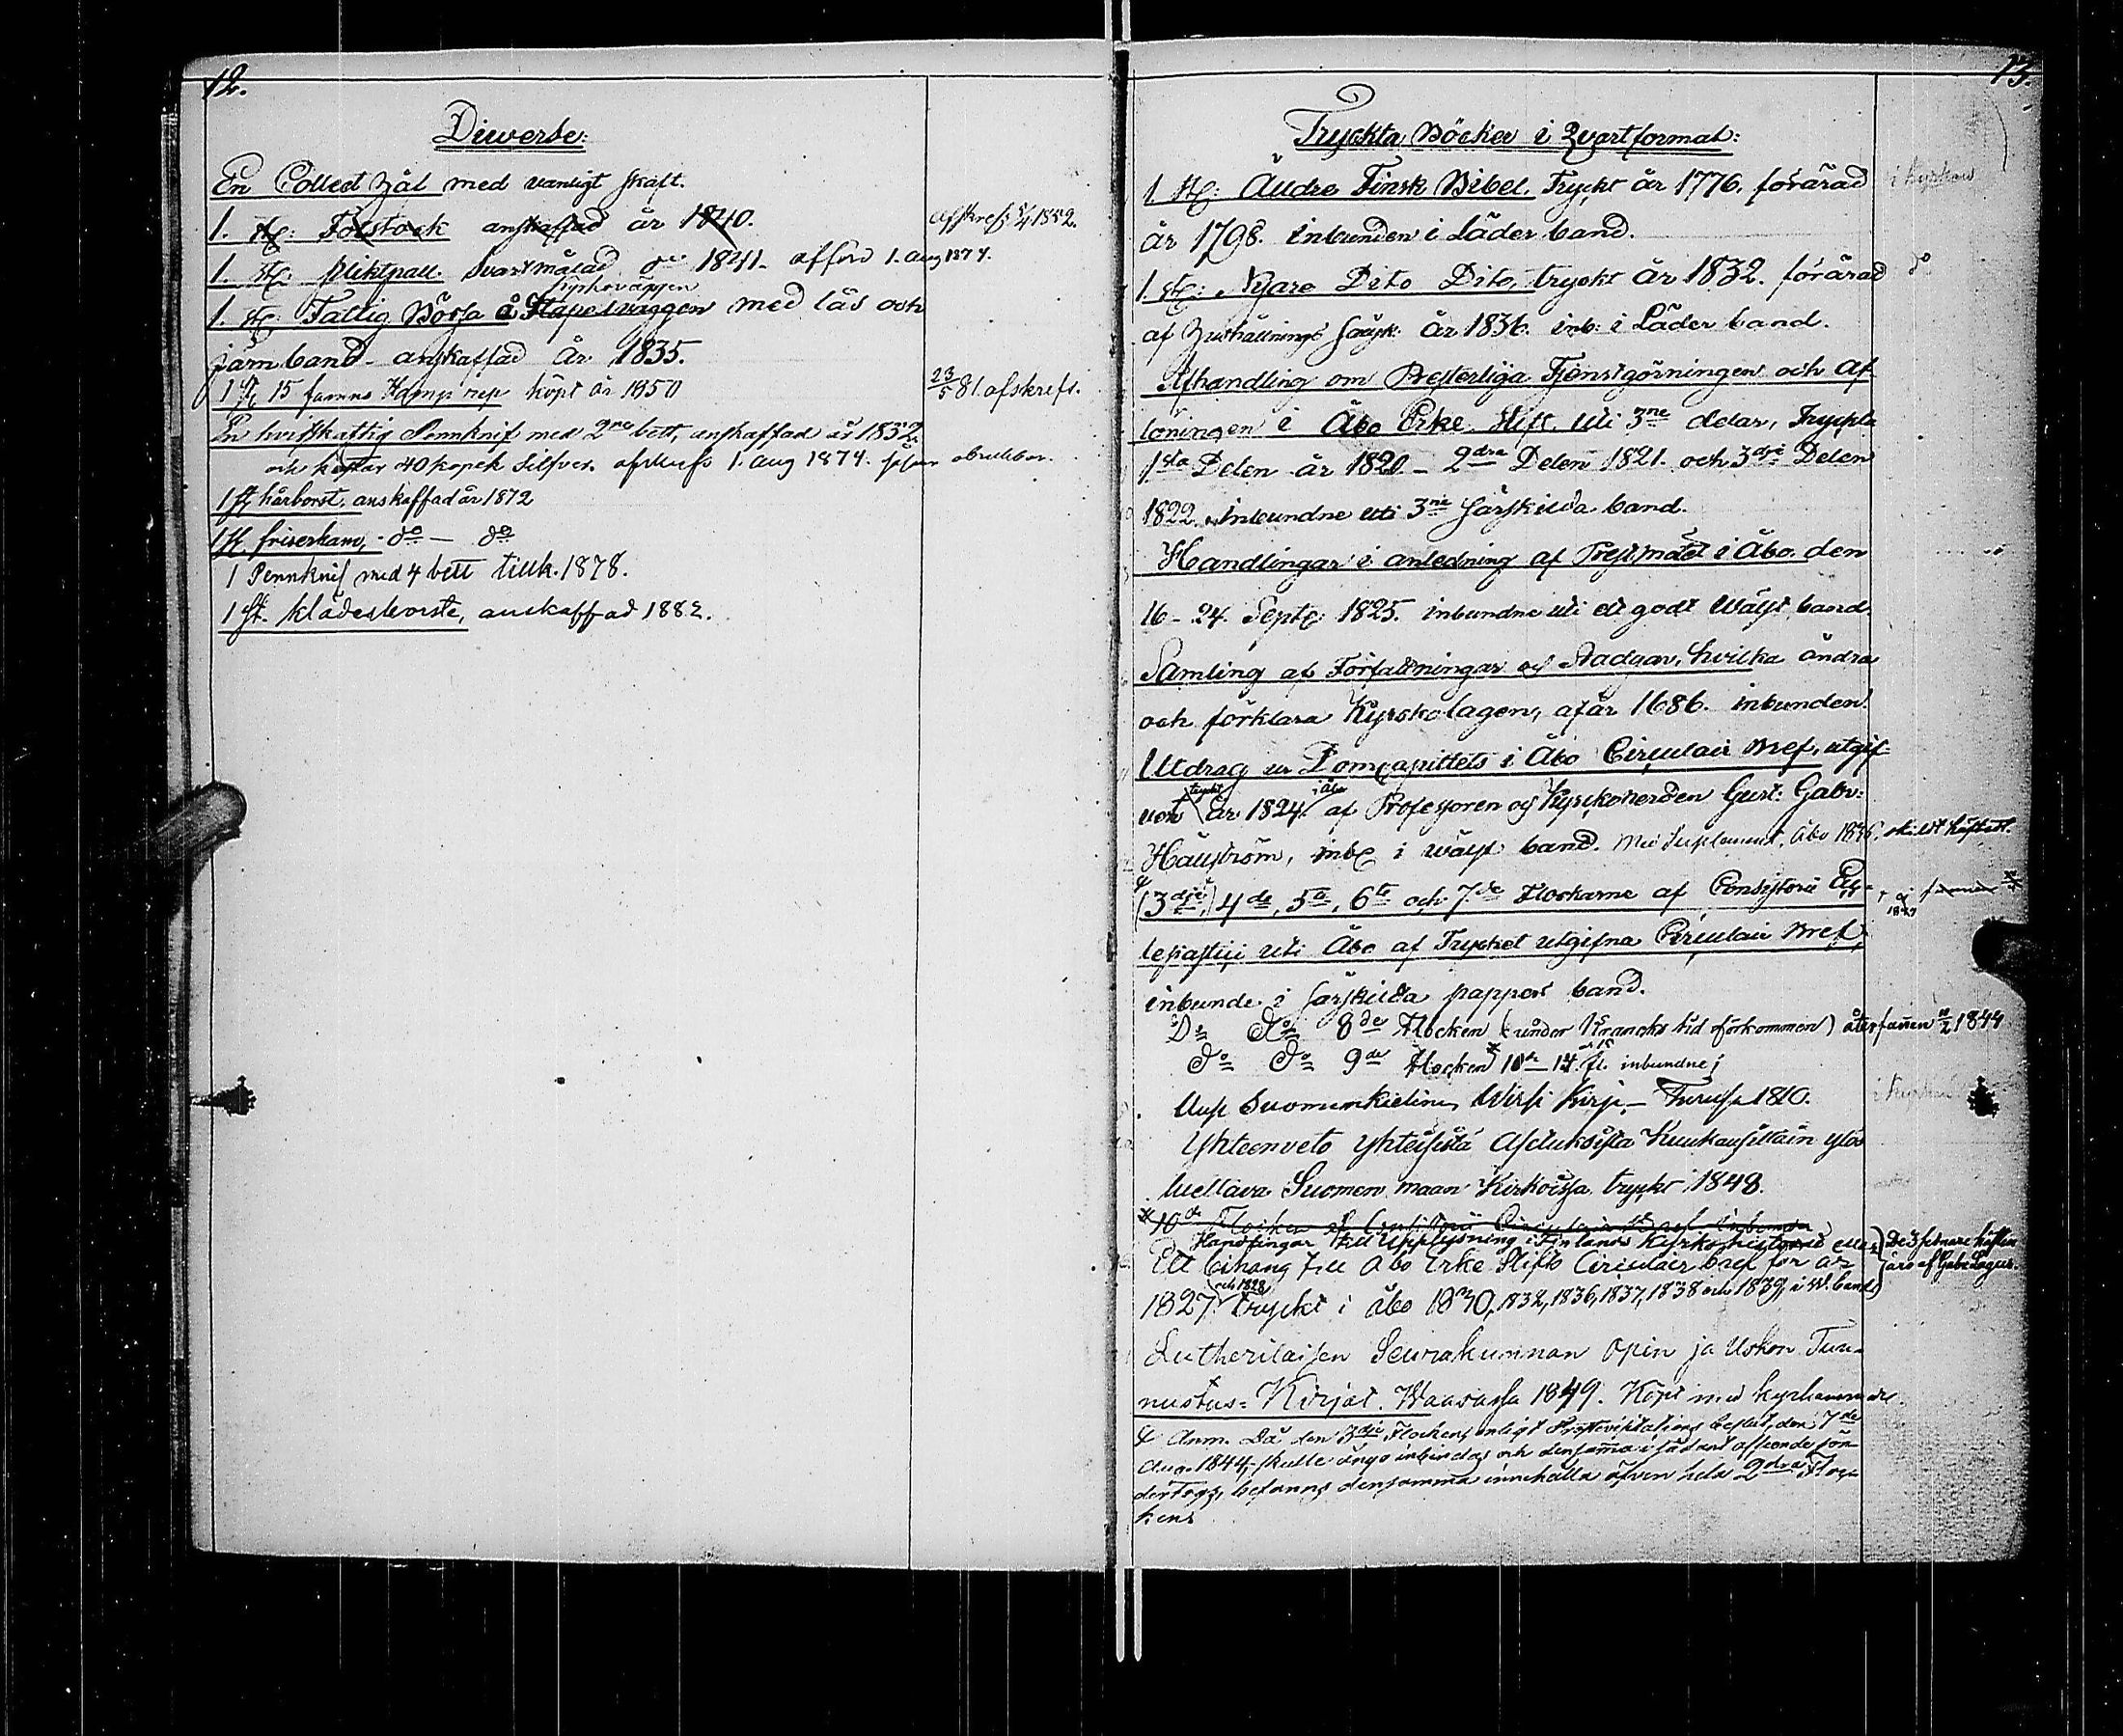 12.
Diverse:
En Collect Håf med vanligt skaft.
1. st: Fotstock anskaffad år 1840. afskrefs 5/4 1852.
1. st: Pliktpall. Svartmålad do 1841. afförd 1. Aug 1874.
1. st: Fattig Bössa å Stapelväggen med lås och
järnband anskaffad år 1835.
1 st 15 famns Hamp rep köpt år 1850 23/5 81 afskrefs.
En hvitskaftig Pennknif med 2ne bett, anskaffad år 1852.
och kostar 40 kopek silfver. afskrefs 1. Aug 1874. såsom obrukbar.
1 st hårborst, anskaffad år 1872
1 st. friserkam, do — do
1 Pennknif med 4 bett tillk. 1878.
1 st. klädesborste, anskaffad 1882.
13.
Tryckta Böcker i Qvartformat:
1. st: Äldre Finsk Bibel. Tryckt år 1776. förärad i kyrkan
år 1798. inbunden i Läder band.
1. st: Nyare Dito Dito, tryckt år 1832. förärad do
af Hushållnings Sällsk: år 1836. inb: i Läder band.
Afhandling om Presterliga Tjenstgörningen och Af-
löningen i Åbo Erke Stift. uti 3ne delar, Tryckta
1sta Delen år 1820 - 2dra Delen 1821. och 3dje Delen
1822. Inbundne uti 3ne särskilda band.
Handlingar i anledning af Prestmötet i Åbo. den
16 - 24. Septe 1825. inbundne uti ett godt wälskt band.
Samling af Författningar och Stadgar, hvilka ändra
och förklara Kyrkolagen, af år 1686. inbunden.
Utdrag ur Domcapittlets i Åbo Circulair Bref, utgif-
vet tryckt år 1824 i Åbo af Professoren och Kyrkoherden Gust: Gabr:
Hällström, inb i wälskt band. Med Suplement, Åbo 1836, skildt häftadt.
(3dje,) 4de, 5te, 6te och 7de Flockarne af Consistorii Ec-
lesiastici uti Åbo af Trycket utgifna Circulair Bref,
inbunde i särskilda pappers band.
Do Do 8de Flocken (under Krancks tid förkommen) återfunnen 10/2 1844
Do Do 9de Flocken 10de - 14. fl. inbundne;
Uusi Suomenkielinen Wirsi Kirja - Turussa 1810. i kyrkan
Yhteenveto yhteisistä Asetuksista Kuukausittain ylös
luettava Suomen maan Kirkoissa tryckt 1848.
10de Flocken af Consistorii Circulair Bref inbunden
Handlingar till Upplysning i Finlands Kyrkohistorie eller
Ett bihang till Åbo Erke Stifts Circulair bref för år
1827 och 1828 tryckt i Åbo 1830, 1832, 1836, 1837, 1838 och 1839, i W. band
De 3 sednare häften äro af Gabr Lagus.
Lutherilaisen Seurakunnan Opin ja Uskon Tun-
nustus-Kirjat. Waasassa 1849. Köpt med kyrkans medel.
Anm. Då den 3dje Flocken, enligt Prostvisitations beslut, den 7de
Aug. 1844, skulle ånyo inbindas och densamma i sådant afseende fön-
dertogs, befanns densamma innehålla äfven hela 2dra Floc-
kens